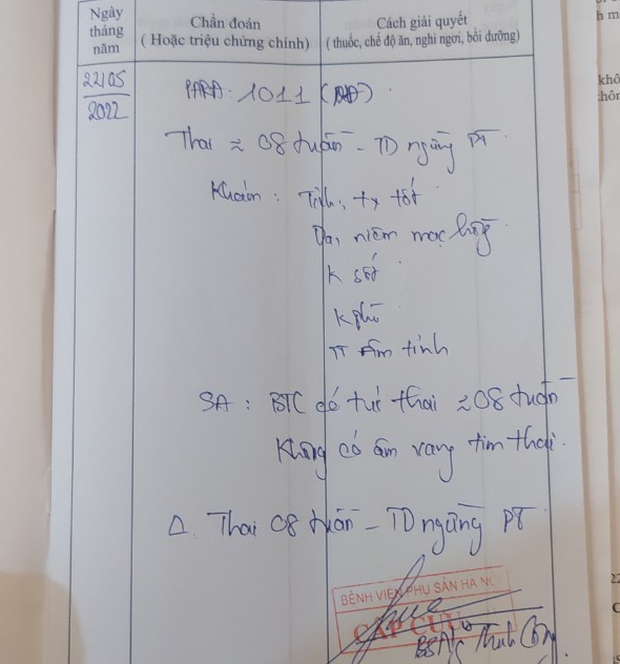 Ngày tháng năm
Chẩn đoán
( Hoặc triệu chứng chính)
Cách giải quyết
(thuốc, chế độ ăn, nghỉ ngơi, bồi dưỡng)
22/05
2022
PARA: 1011
Thai ≈ 08 tuần - TD ngừng PT
Khám: Tỉnh, tx tốt
Da, niêm mạc hồng
K sốt
K phù
TT Âm tính
SA: BTC có túi thai ≈ 08 tuần
Không có âm vang tim thai.
Δ. Thai 08 tuần - TD ngừng PT
BỆNH VIỆN PHỤ SẢN HÀ N
CẤP CỨU